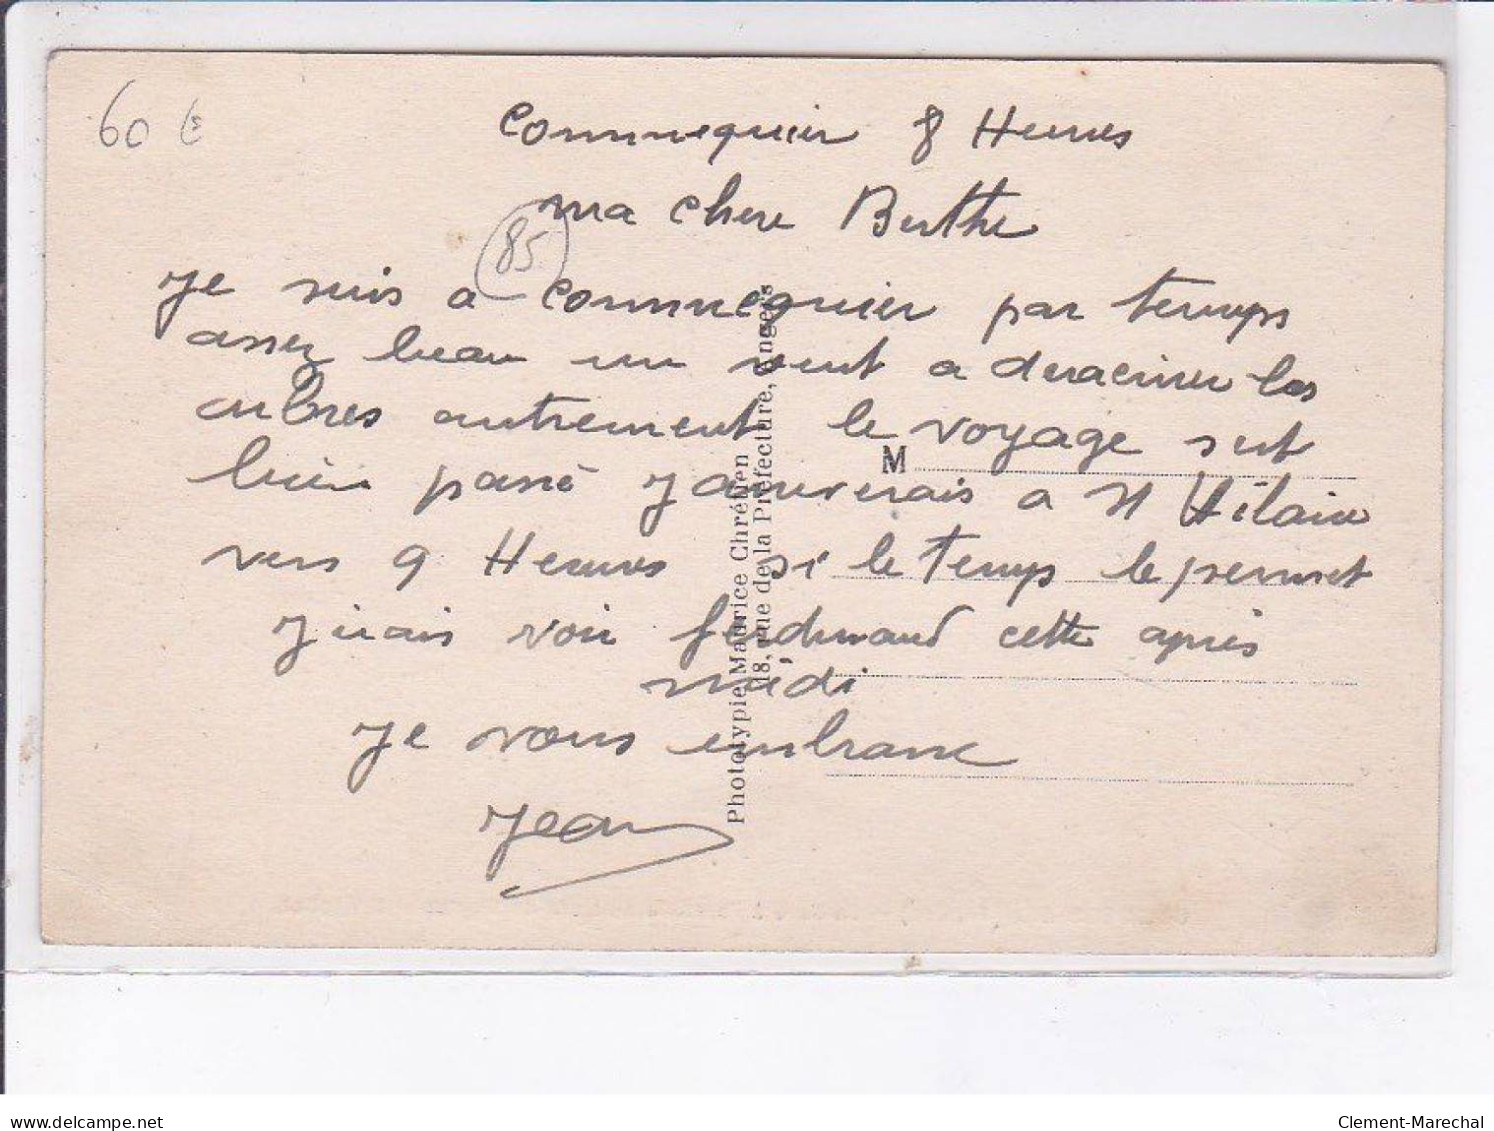 60 €
Commequier 8 Heures
ma chere Berthe
85
Je suis a Commequier par temps
assez beau un vent a deraciner les
arbres autrement le voyage sest
bien passé Jarriverais a St Hilaire
vers 9 Heures si le temps le permet
Jirais voir ferdinand cette après
midi
Je vous embrasse
Jean
M
Phototypie Maurice Chrétien
18, rue de la Préfecture, Angers
delcampe.net
Clement-Marechal